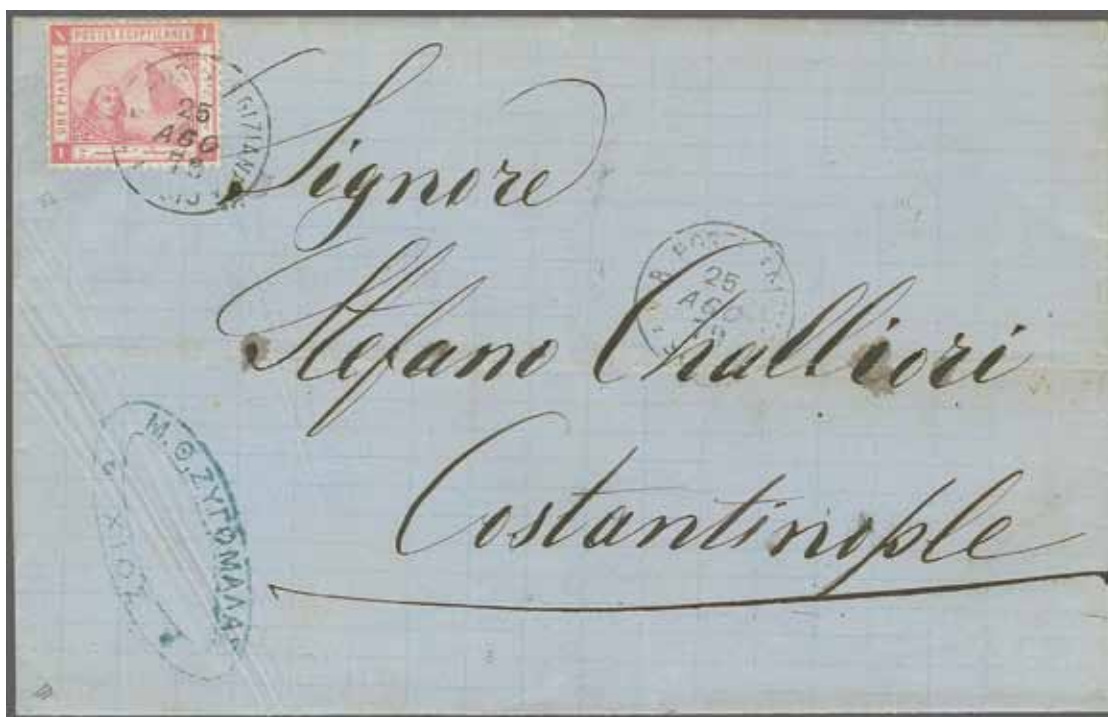 1 POSTES EGYPTIENNES 1
UNE PIASTRE
25
AGO
Signore
25
AGO
Stefano Challiori
Costantinople
Μ.Θ.ΖΥΓΟΜΑΛΑ
ΧΙΟΣ